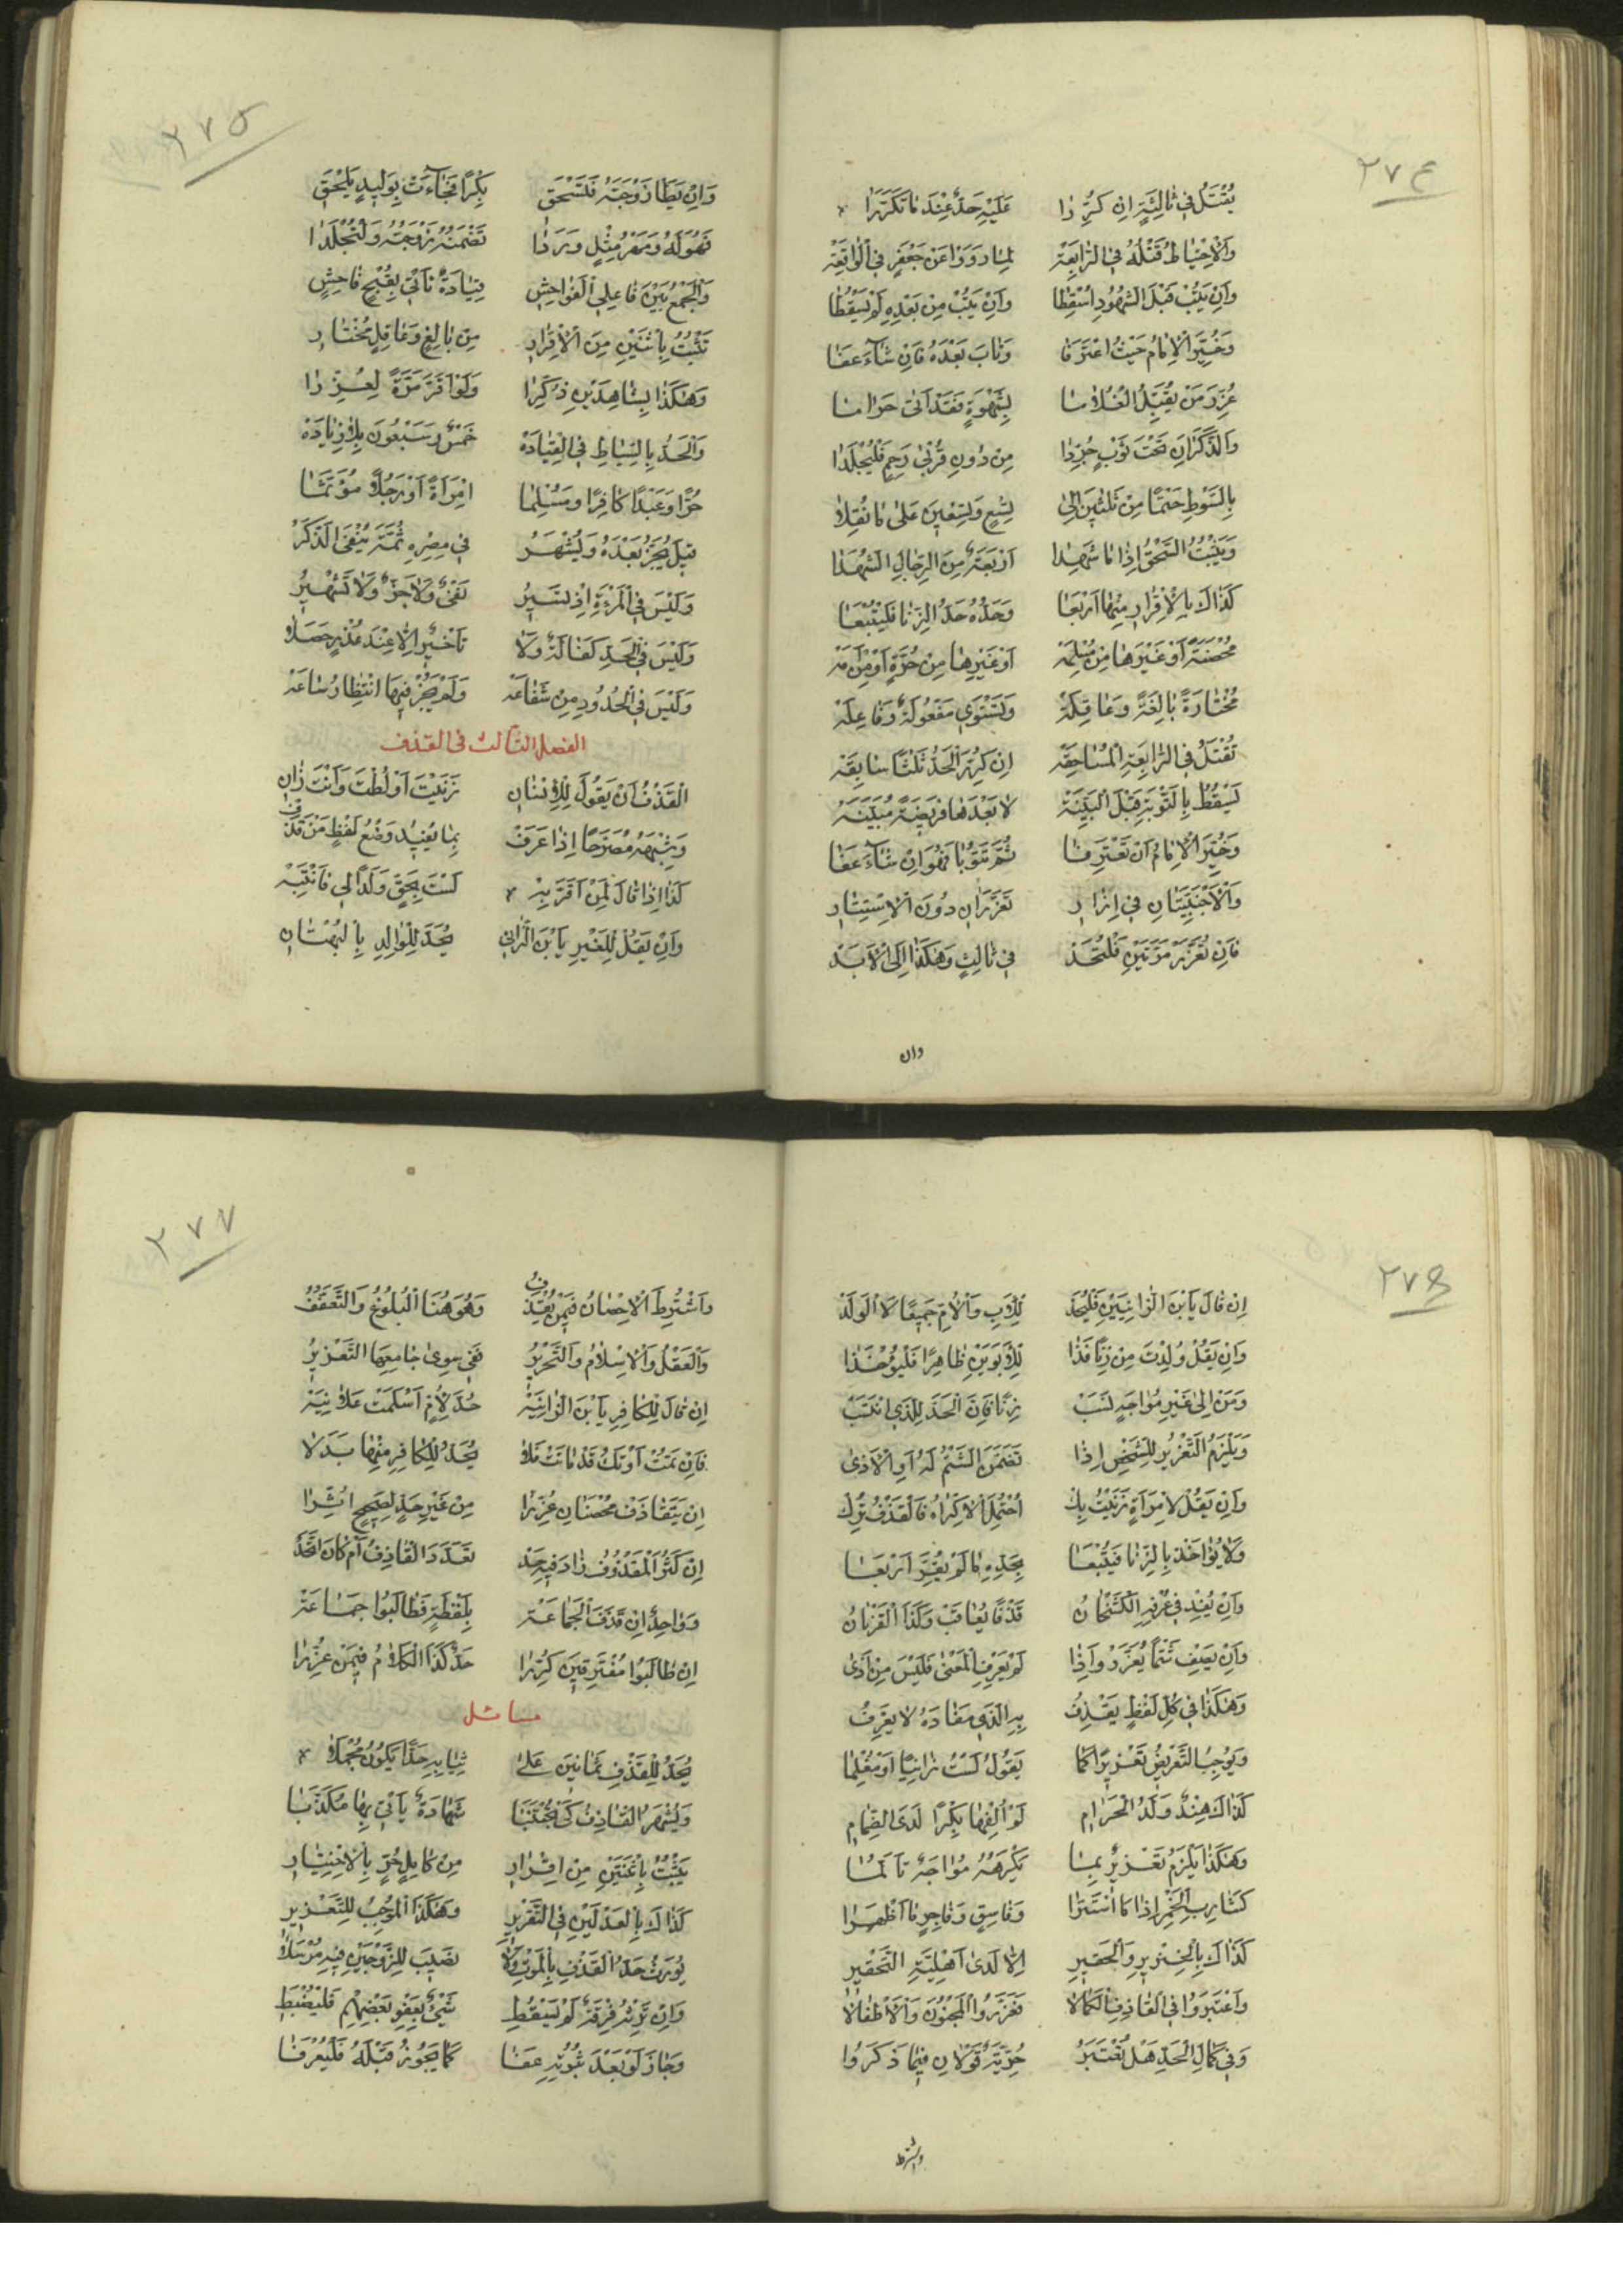 ٢٧٤
يُقْتَلُ فِي ثَالِثَةٍ اِنْ كُرِّرَا عَلَيْهِ حَدٌّ عِنْدَ مَا تَكَرَّرَا
وَالْاِحْتِيَاطُ قَتْلُهُ فِي الرَّابِعَةْ لِمَا رَوَوْا عَنْ جَعْفَرٍ فِي الْوَاقِعَةْ
وَاِنْ يَتُبْ قَبْلَ الشُّهُودِ اُسْقِطَا وَاِنْ يَتُبْ مِنْ بَعْدِهِ لَمْ يَسْقُطَا
وَخُيِّرَ الْاِمَامُ حَيْثُ اعْتَرَفَا وَتَابَ بَعْدَهُ فَاِنْ شَآءَ عَفَا
عُزِّرَ مَنْ يُقَبِّلُ الْغُلَامَا بِشَهْوَةٍ فَقَدْ اَتَى حَرَامَا
وَالذَّكَرَانِ تَحْتَ ثَوْبٍ جُرِّدَا مِنْ دُونِ قُرْبَى رَحِمٍ فَلْيُجْلَدَا
بِالسَّوْطِ حَتْمًا مِنْ ثَلٰثِينَ اِلَى تِسْعٍ وَتِسْعِينَ عَلَى مَا نُقِلَا
وَيَثْبُتُ السَّحْقُ اِذَا مَا شَهِدَا اَرْبَعَةٌ مِنَ الرِّجَالِ الشُّهَدَا
كَذَاكَ بِالْاِقْرَارِ مِنْهَا اَرْبَعَا وَحَدُّهُ حَدُّ الزِّنَا فَلْيُتْبَعَا
مُحْصَنَةً اَوْ غَيْرَهَا مِنْ مُسْلِمَةْ اَوْ غَيْرِهَا مِنْ حُرَّةٍ اَوْ مِنْ اَمَةْ
مُخْتَارَةً بَالِغَةً وَعَاقِلَةْ وَتَسْتَوِي مَفْعُولَةٌ وَفَاعِلَةْ
تُقْتَلُ فِي الرَّابِعَةِ الْمُسَاحِقَةْ اِنْ كُرِّرَ الْحَدُّ ثَلٰثًا سَابِقَةْ
يَسْقُطُ بِالتَّوْبَةِ قَبْلَ الْبَيِّنَةْ لَا بَعْدَهَا فَرِيضَةً مُبَيَّنَةْ
وَخُيِّرَ الْاِمَامُ اَنْ تَعْتَرِفَا ثُمَّ تَتُوبَا فَهُوَ اِنْ شَآءَ عَفَا
وَالْاَجْنَبِيَّتَانِ فِي اِزَارِ تُعَزَّرَانِ دُونَ الْاِسْتِتَارِ
فَاِنْ تُعَزَّرْ مَرَّتَيْنِ فَلْتُحَدّْ فِي ثَالِثٍ وَهٰكَذَا اِلَى الْاَبَدْ
وان
٢٧٥
وَاِنْ يَطَا زَوْجَتَهُ فَتَسْحَقِ بِكْرًا فَجَآءَتْ بِوَلِيدٍ يَلْحَقِ
فَهُوَ لَهُ وَمَهْرُ مِثْلٍ وَرَدَا تَضْمَنُهُ زَوْجَتُهُ وَلْتُجْلَدَا
وَالْجَمْعُ بَيْنَ فَاعِلِي الْفَوَاحِشِ قِيَادَةٌ تَاْتِي بِقُبْحٍ فَاحِشِ
تَثْبُتُ بِاثْنَيْنِ مِنَ الْاِقْرَارِ مِنْ بَالِغٍ وَعَاقِلٍ مُخْتَارِ
وَهٰكَذَا بِشَاهِدَيْنِ ذُكِرَا وَلَوْ اَقَرَّ مَرَّةً لَعُزِّرَا
وَالْحَدُّ بِالسِّيَاطِ فِي الْقِيَادَةْ خَمْسٌ وَسَبْعُونَ بِلَا زِيَادَةْ
حُرًّا وَعَبْدًا كَافِرًا وَمُسْلِمَا امْرَاَةً اَوْ رَجُلًا مُؤَثَّمَا
قِيلَ يُجَزُّ بَعْدَهُ وَيُشْهَرُ فِي مِصْرِهِ ثُمَّتَ يُنْفَى الذَّكَرُ
وَلَيْسَ فِي الْمَرْءَةِ اِذْ تَسِيرُ نَفْيٌ وَلَا جَزٌّ وَلَا تَشْهِيرُ
وَلَيْسَ فِي الْحَدِّ كَفَالَةٌ وَلَا تَاْخِيرٌ اِلَّا عِنْدَ عُذْرٍ حَصَلَا
وَلَيْسَ فِي الْحُدُودِ مِنْ شَفَاعَةْ وَلَمْ يَجُزْ فِيهَا انْتِظَارُ سَاعَةْ
الفصل الثالث فى القذف
الْقَذْفُ اَنْ يَقُولَ لِلْاِنْسَانِ زَنَيْتَ اَوْ لُطْتَ وَاَنْتَ زَانِ
وَشِبْهَهُ مُصَرِّحًا اِذَا عَرَفْ بِمَا يُفِيدُ وَضْعُ لَفْظٍ مَنْ قَذَفْ
كَذَا اِذَا قَالَ لِمَنْ اَقَرَّ بِهْ لَسْتَ بِحَقٍّ وَلَدًا لِي فَانْتَبِهْ
وَاِنْ يَقُلْ لِلْغَيْرِ يَا بْنَ الزَّانِي يُحَدُّ لِلْوَالِدِ بِالْبُهْتَانِ
٢٧٦
اِنْ قَالَ يَا بْنَ الزَّانِيَيْنِ فَلْيُحَدّْ لِلْاَبِ وَالْاُمِّ جَمِيعًا لَا الْوَلَدْ
وَاِنْ يَقُلْ وُلِدْتَ مِنْ زِنًا فَذَا لِلْاَبَوَيْنِ ظَاهِرًا فَلْيُؤْخَذَا
وَمَنْ اِلَى غَيْرِ مُوَاجَهٍ نَسَبْ زِنًا فَاِنَّ الْحَدَّ لِلَّذِي انْتَسَبْ
وَيَلْزَمُ التَّعْزِيرُ لِلشَّخْصِ اِذَا تَضَمَّنَ الشَّتْمُ لَهُ اَوِ الْاَذَى
وَاِنْ يَقُلْ لِامْرَاَةٍ زَنَيْتُ بِكْ اُحْتُمِلَ الْاِكْرَاهُ فَالْقَذْفُ تُرِكْ
وَلَا يُؤَاخَذْ بِالزِّنَا فَيُتْبَعَا بِحَدِّهِ مَا لَمْ يُقِرَّ اَرْبَعَا
وَاِنْ يُفِدْ فِي عُرْفِهِ الْكَشْخَانُ قَذْفًا يُعَاقَبْ وَكَذَا الْقَرْنَانُ
وَاِنْ يُفِدْ شَتْمًا يُعَزَّرْ وَاِذَا لَمْ يَعْرِفِ الْمَعْنَى فَلَيْسَ مِنْ اَذَى
وَهٰكَذَا فِي كُلِّ لَفْظٍ يَقْذِفُ بِهِ الَّذِي مَفَادَهُ لَا يَعْرِفُ
وَيُوجِبُ التَّعْرِيضُ تَعْزِيرًا كَمَا يَقُولُ لَسْتُ زَانِيًا اَوْ مُغْلِمَا
كَذَاكَ هِنْدٌ وَلَدُ الْحَرَامِ لَمْ اُلْفِهَا بِكْرًا لَدَى الضِّمَامِ
وَهٰكَذَا يَلْزَمُ تَعْزِيرٌ بِمَا يَكْرَهُهُ مُوَاجَهٌ تَاَلُّمَا
كَشَارِبِ الْخَمْرِ اِذَا مَا اسْتَتَرَا وَفَاسِقٍ وَفَاجِرٍ مَا اَظْهَرَا
كَذَاكَ بِالْخِنْزِيرِ وَالْحَقِيرِ اِلَّا لَدَى اَهْلِيَّةِ التَّحْقِيرِ
وَاعْتَبَرُوا فِي الْقَاذِفِ الْكَمَالَا فَعَزَّرُوا الْمَجْنُونَ وَالْاَطْفَالَا
وَفِي كَمَالِ الْحَدِّ هَلْ تُعْتَبَرُ حُرِّيَّةٌ قَوْلَانِ فِيمَا ذَكَرُوا
واشترط
٢٧٧
وَاشْتُرِطَ الْاِحْصَانُ فِيمَنْ يُقْذَفُ وَهُوَ هُنَا الْبُلُوغُ وَالتَّعَفُّفُ
وَالْعَقْلُ وَالْاِسْلَامُ وَالتَّحْرِيرُ فَفِي سِوَى جَامِعِهَا التَّعْزِيرُ
اِنْ قَالَ لِلْكَافِرِ يَا بْنَ الزَّانِيَةْ حُدَّ لِاُمٍّ اَسْلَمَتْ عَلَانِيَةْ
فَاِنْ تَمُتْ اَوْ تَكُ قَدْ مَاتَتْ فَلَا يُحَدُّ لِلْكَافِرِ مِنْهَا بَدَلَا
اِنْ يَتَقَاذَفْ مُحْصَنَانِ عُزِّرَا مِنْ غَيْرِ حَدٍّ لِصَحِيحٍ اُثِرَا
اِنْ كَثُرَ الْمَقْذُوفُ زَادَ فِيهِ حَدّْ تَعَدَّدَ الْقَاذِفُ اَمْ كَانَ اتَّحَدْ
وَوَاحِدٌ اِنْ قَذَفَ الْجَمَاعَةْ بِلَفْظَةٍ فَطَالَبُوا جَمَاعَةْ
اِنْ طَالَبُوا مُفْتَرِقِينَ كُرِّرَا حَدٌّ كَذَا الْكَلَامُ فِيمَنْ عُزِّرَا
مسائل
يُحَدُّ لِلْقَذْفِ ثَمَانِينَ عَلَى ثِيَابِهِ حَدًّا يَكُونُ مُجْمَلَا
وَيُشْهَرُ الْقَاذِفُ كَيْ تُجْتَنَبَا شَهَادَةٌ يَاْتِي بِهَا مُكَذَّبَا
يَثْبُتُ بِاثْنَيْنِ مِنِ اقْرَارِ مِنْ كَامِلٍ حُرٍّ بِالْاِخْتِيَارِ
كَذَاكَ بِالْعَدْلَيْنِ فِي التَّقْرِيرِ وَهٰكَذَا الْمُوجِبُ لِلتَّعْزِيرِ
يُورَثُ حَدُّ الْقَذْفِ بِالْمَوْتِ وَلَا نَصِيبَ لِلزَّوْجَيْنِ فِيهِ مُرْسَلَا
وَاِنْ تَرِثْهُ فِرْقَةٌ لَمْ يَسْقُطِ شَيْءٌ بِعَفْوِ بَعْضِهِمْ فَلْيُضْبَطِ
وَجَازَ لَوْ بَعْدَ ثُبُوتِهِ عَفَا كَمَا يَجُوزُ قَبْلَهُ فَلْيُعْرَفَا